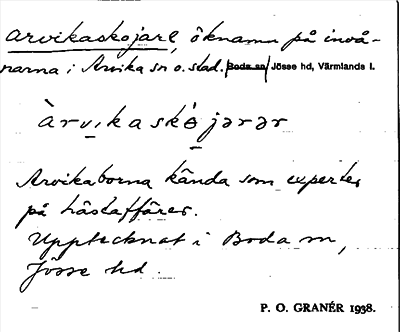 Arvikaskojare, öknamn på invå-
narna i Arvika sn o. stad. Boda sn Jösse hd, Värmlands l.
àrvịkaskójərər
Arvikaborna kända som experter
på hästaffärer.
Upptecknat i Boda sn,
Jösse hd.
P. O. GRANÉR 1938.